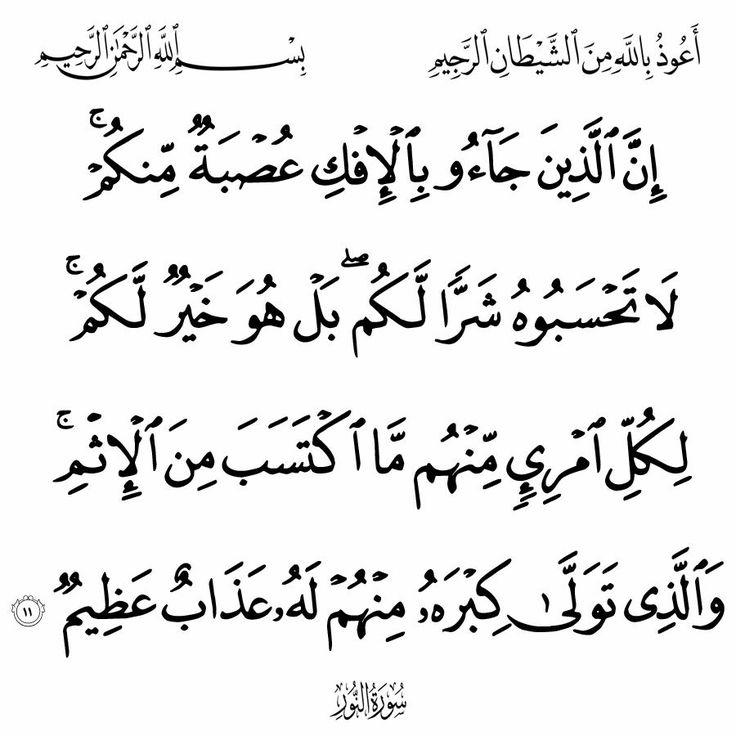 أَعُوذُ بِاللَّهِ مِنَ ٱلشَّيْطَانِ ٱلرَّجِيمِ
بِسْمِ ٱللَّهِ ٱلرَّحْمَٰنِ ٱلرَّحِيمِ
إِنَّ ٱلَّذِينَ جَآءُو بِٱلْإِفْكِ عُصْبَةٌ مِّنكُمْ ۚ
لَا تَحْسَبُوهُ شَرًّا لَّكُم ۖ بَلْ هُوَ خَيْرٌ لَّكُمْ ۚ
لِكُلِّ ٱمْرِيٍٕ مِّنْهُم مَّا ٱكْتَسَبَ مِنَ ٱلْإِثْمِ ۚ
وَٱلَّذِى تَوَلَّىٰ كِبْرَهُۥ مِنْهُمْ لَهُۥ عَذَابٌ عَظِيمٌ ١١
سُورَةُ النُّورِ